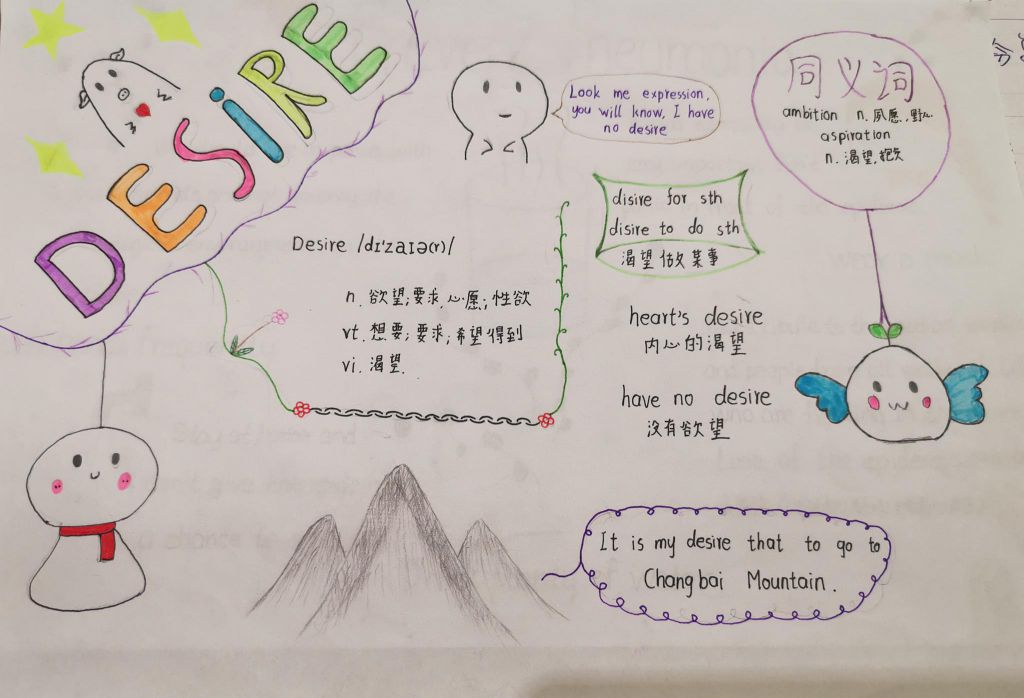 DESiRE
Look me expression,
you will know, I have
no desire
同义词
ambition n. 夙愿,野心
aspiration
n. 渴望,抱负
Desire /dɪ'zaɪə(r)/
n. 欲望;要求,心愿;性欲
vt. 想要;要求;希望得到
vi. 渴望.
disire for sth
disire to do sth
渴望做某事
heart's desire
内心的渴望
have no desire
没有欲望
It is my desire that to go to
Changbai Mountain.